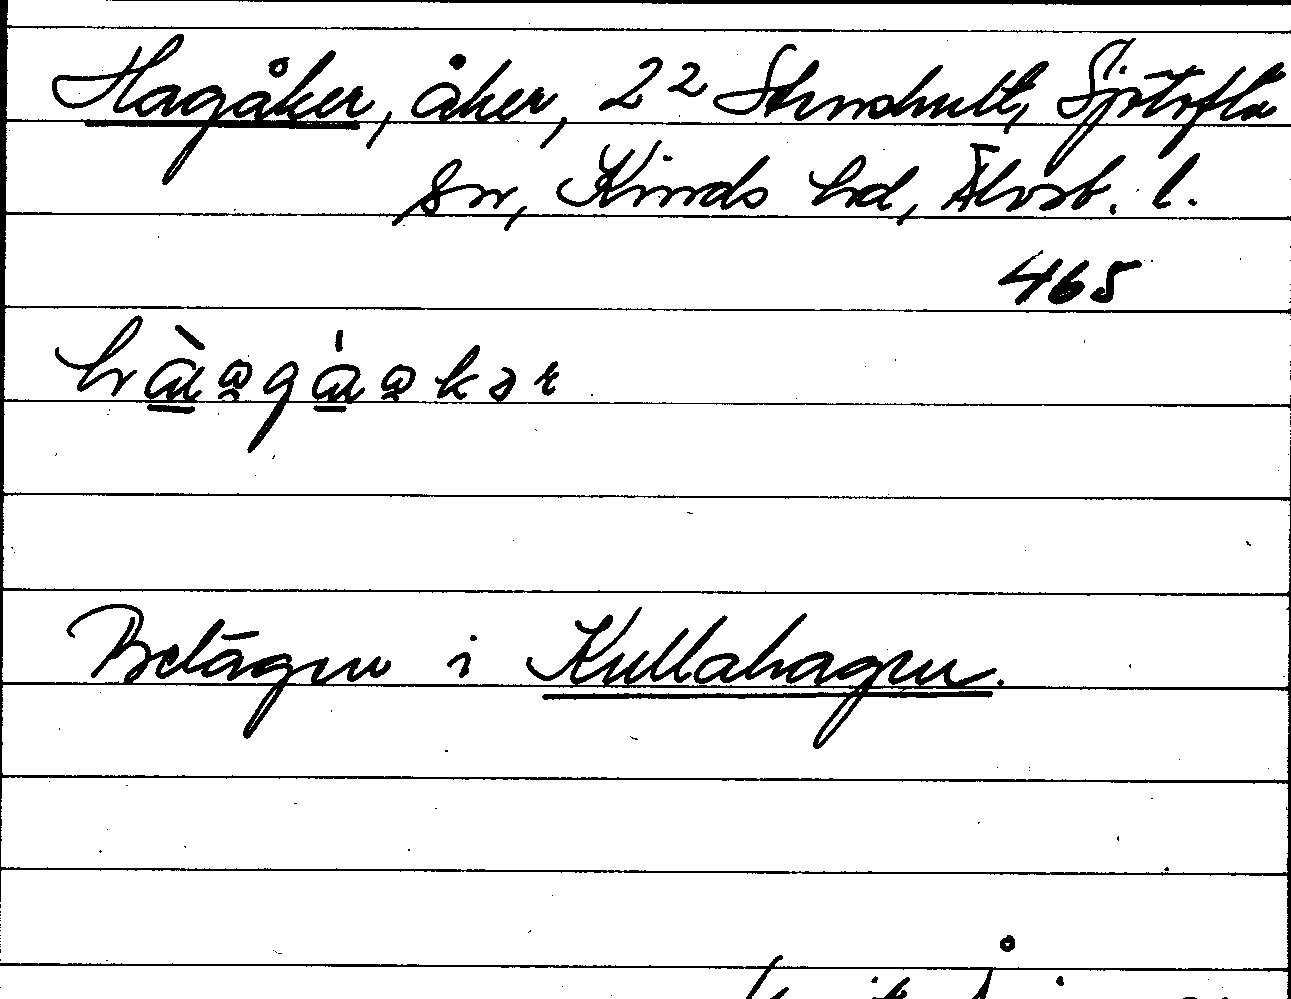 Hagåker, åker, 2² Stenshult, Sjötofta
sn, Kinds hd, Älvsb. l.
465
Belägen i Kullahagen.